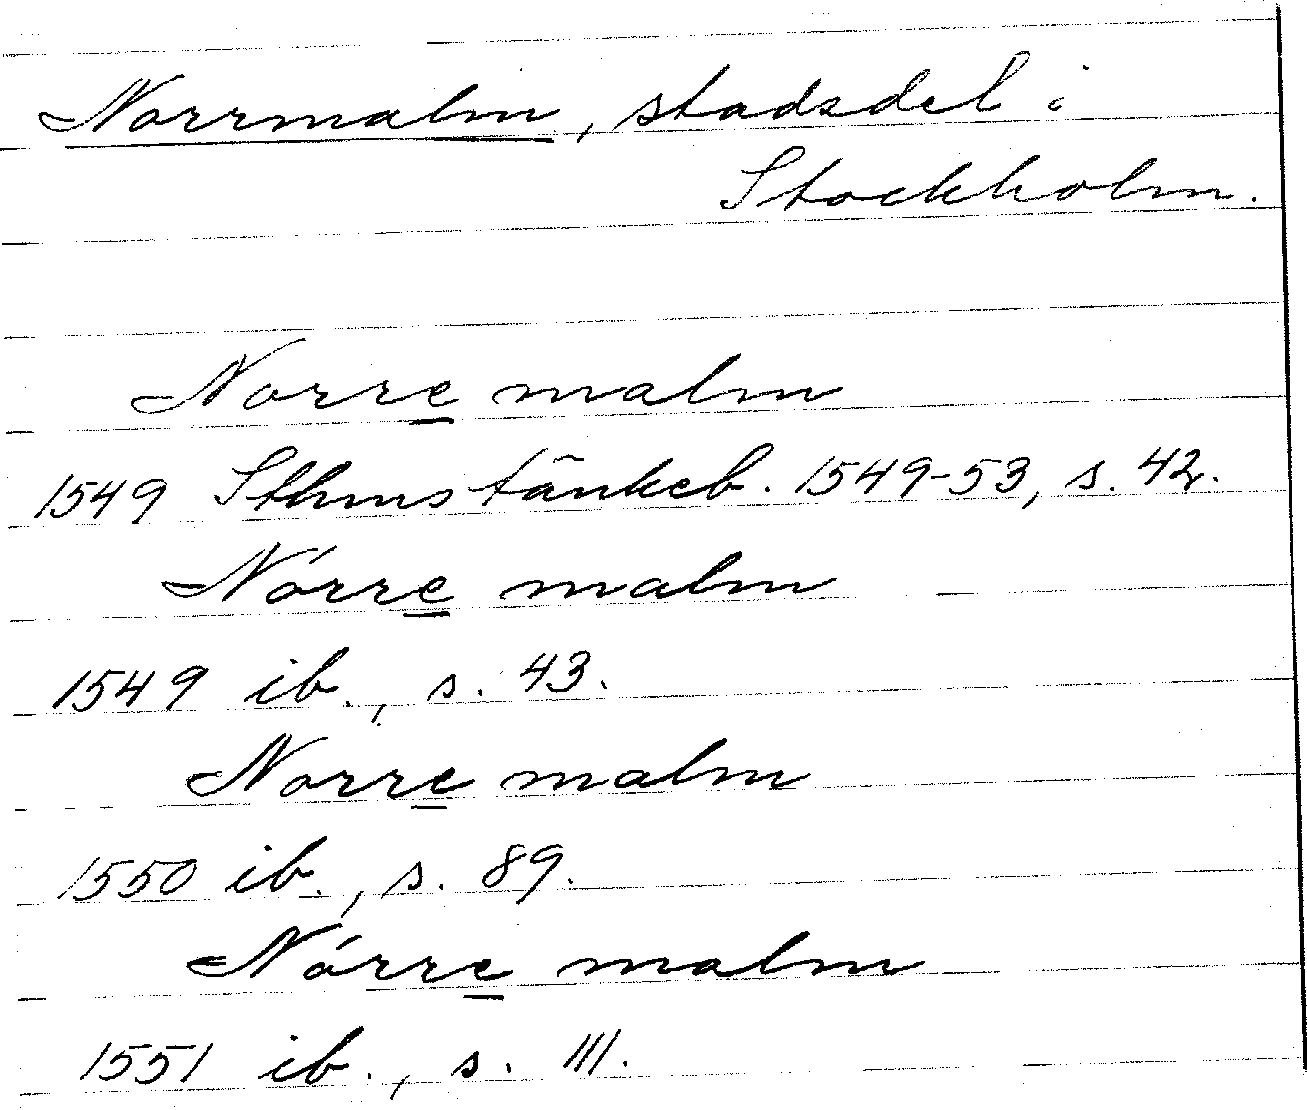 Norrmalm, stadsdel i
Stockholm.
Norre malm
1549 Sthms tänkeb. 1549-53, s. 42.
Nórre malm
1549 ib., s. 43.
Norre malm
1550 ib., s. 89.
Nórre malm
1551 ib., s. 111.